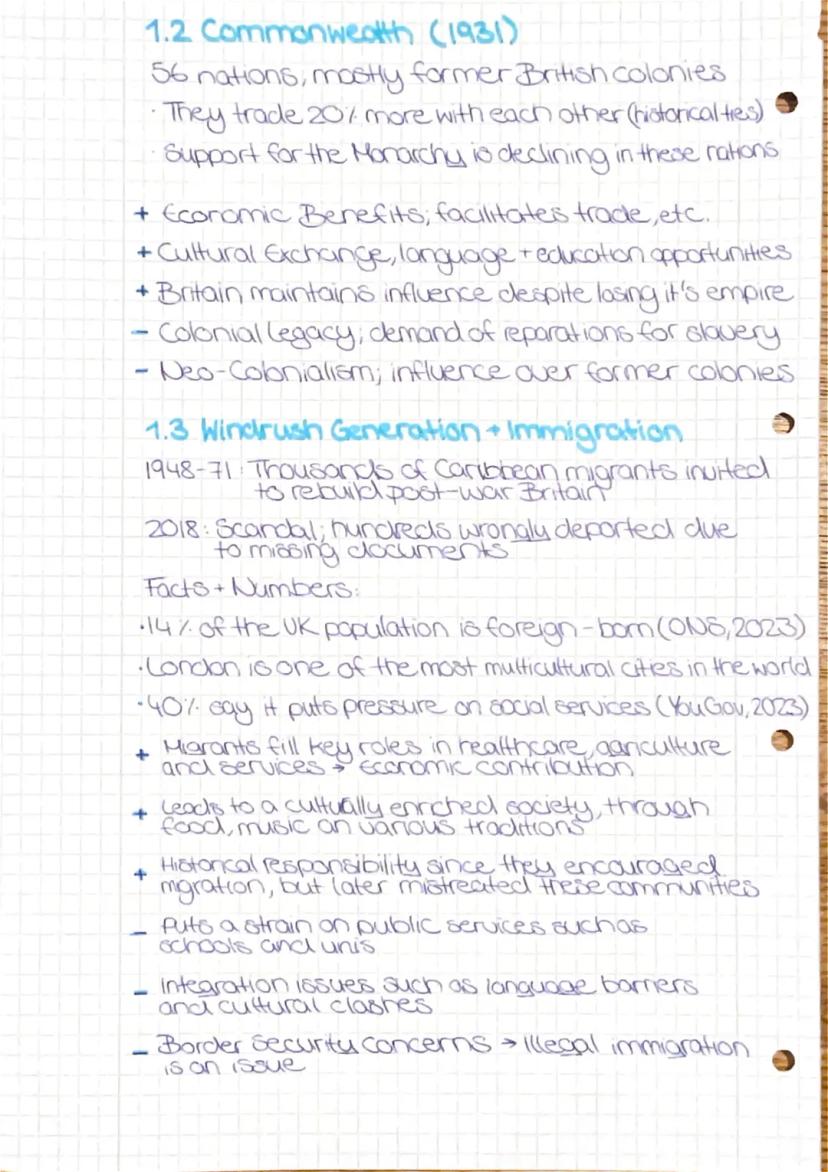 1.2 Commonwealth (1931)
56 nations, mostly former British colonies
· They trade 20% more with each other (historical ties)
· Support for the Monarchy is declining in these nations
+ Economic Benefits; facilitates trade, etc.
+ Cultural Exchange, language + education opportunities
+ Britain maintains influence despite losing it's empire
- Colonial Legacy; demand of reparations for slavery
- Neo-Colonialism; influence over former colonies
1.3 Windrush Generation + Immigration
1948-71: Thousands of Caribbean migrants invited
to rebuild post-war Britain
2018: Scandal; hundreds wrongly deported due
to missing documents
Facts + Numbers:
· 14% of the UK population is foreign-born (ONS, 2023)
· London is one of the most multicultural cities in the world
· 40% say it puts pressure on social services (YouGov, 2023)
+ Migrants fill key roles in healthcare, agriculture
and services → Economic contribution
+ Leads to a culturally enriched society, through
food, music an various traditions
+ Historical responsibility since they encouraged
migration, but later mistreated these communities
- Puts a strain on public services such as
schools and unis
- Integration issues such as language barriers
and cultural clashes
- Border security concerns → Illegal immigration
is an issue